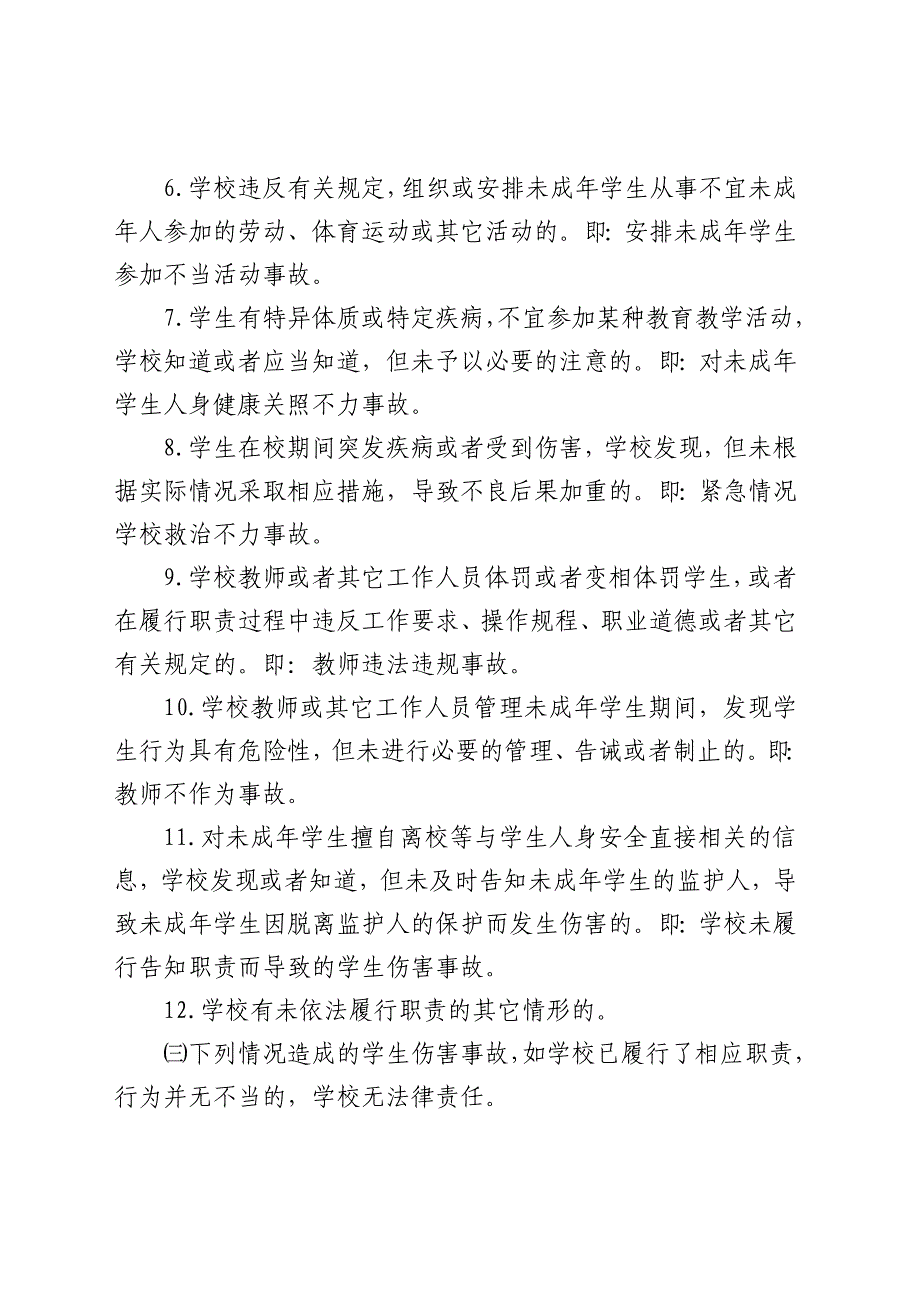 6.学校违反有关规定,组织或安排未成年学生从事不宜未成
年人参加的劳动、体育运动或其它活动的。即:安排未成年学生
参加不当活动事故。
7.学生有特异体质或特定疾病,不宜参加某种教育教学活动,
学校知道或者应当知道,但未予以必要的注意的。即:对未成年
学生人身健康关照不力事故。
8.学生在校期间突发疾病或者受到伤害,学校发现,但未根
据实际情况采取相应措施,导致不良后果加重的。即:紧急情况
学校救治不力事故。
9.学校教师或者其它工作人员体罚或者变相体罚学生,或者
在履行职责过程中违反工作要求、操作规程、职业道德或者其它
有关规定的。即:教师违法违规事故。
10.学校教师或其它工作人员管理未成年学生期间,发现学
生行为具有危险性,但未进行必要的管理、告诫或者制止的。即:
教师不作为事故。
11.对未成年学生擅自离校等与学生人身安全直接相关的信
息,学校发现或者知道,但未及时告知未成年学生的监护人,导
致未成年学生因脱离监护人的保护而发生伤害的。即:学校未履
行告知职责而导致的学生伤害事故。
12.学校有未依法履行职责的其它情形的。
㈢下列情况造成的学生伤害事故,如学校已履行了相应职责,
行为并无不当的,学校无法律责任。